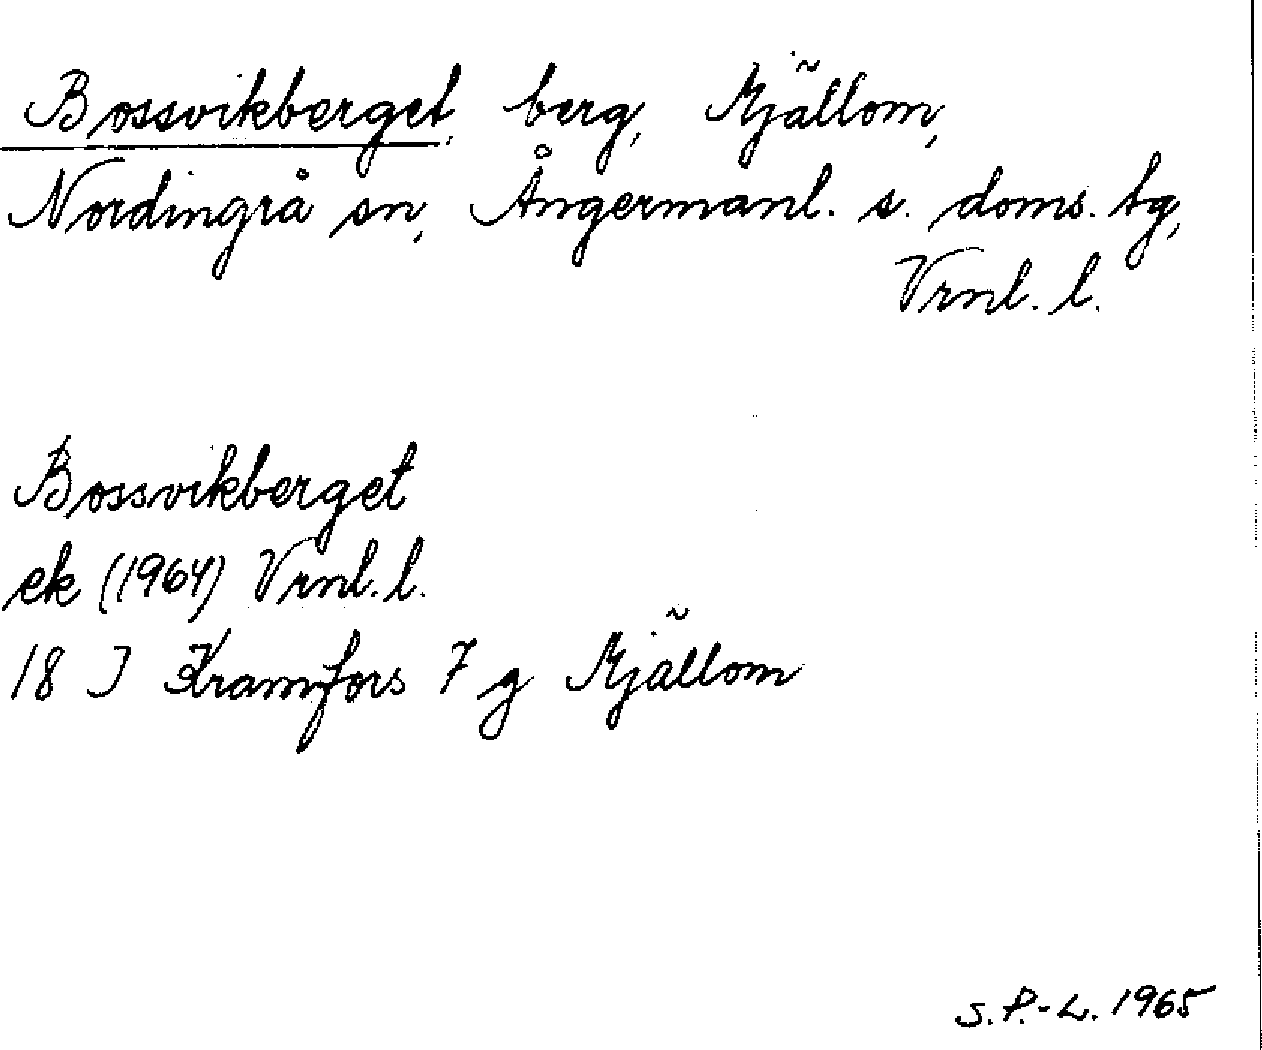 Bossvikberget, berg, Mjällom,
Nordingrå sn, Ångermanl. s. doms. tg,
Vrnl. l.
Bossvikberget
ek (1964) Vrnl. l.
18 J Kramfors 7 g Mjällom
S.P.-L. 1965